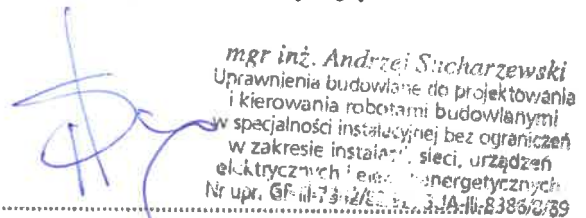 mgr inż. Andrzej Sucharzewski
Uprawnienia budowlane do projektowania
i kierowania robotami budowlanymi
w specjalności instalacyjnej bez ograniczeń
w zakresie instalacji, sieci, urządzeń
elektrycznych i energetycznych
Nr upr.